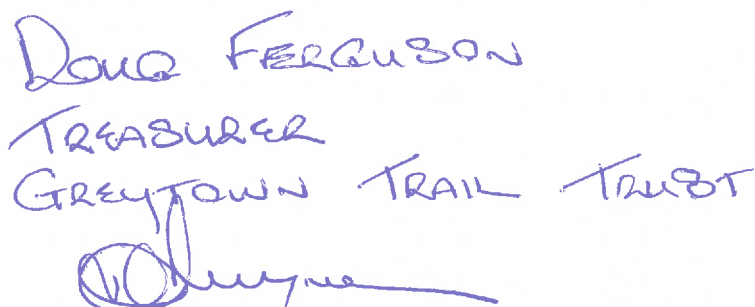 DOUG FERGUSON
TREASURER
GREYTOWN TRAIL TRUST